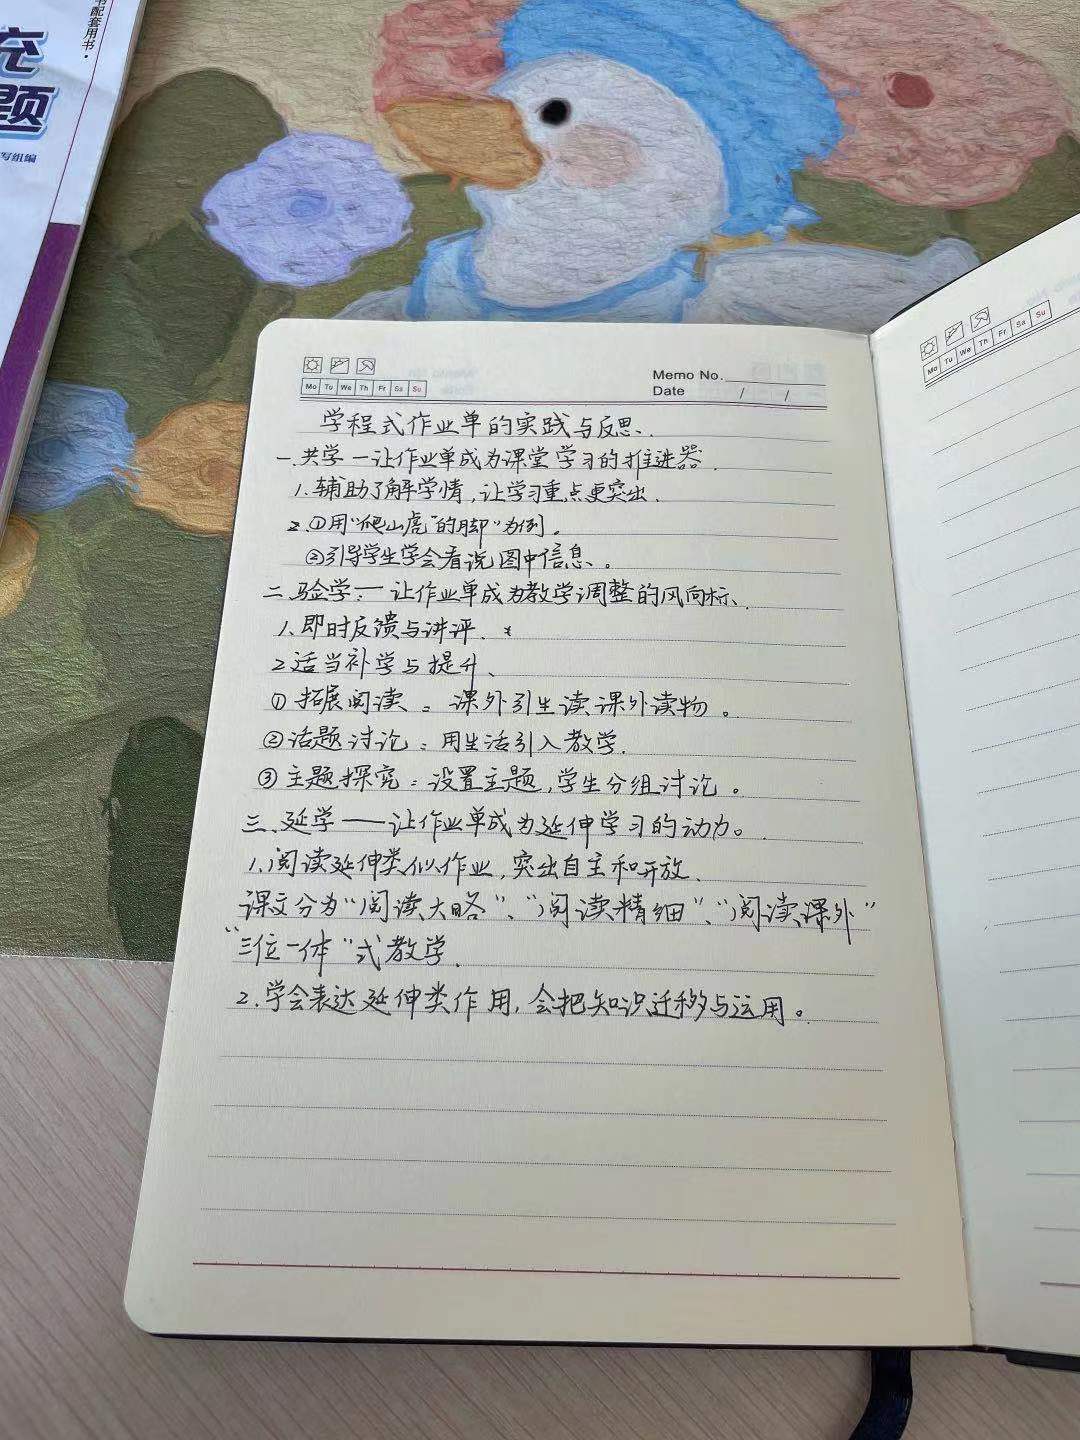 书配套用书·
充
题
写组编
Mo Tu We Th Fr Sa Su
Memo No.
Date / /
学程式作业单的实践与反思.
一.共学一让作业单成为课堂学习的推进器.
1.辅助了解学情,让学习重点更突出.
2.①用"爬山虎"的脚"为例。
②引导学生学会看说图中信息。
二.验学:一让作业单成为教学调整的风向标、
1.即时反馈与讲评.
2.适当补学与提升、
①拓展阅读:课外引生读课外读物。
②话题讨论:用生活引入教学.
③主题探究:设置主题,学生分组讨论。
三.延学——让作业单成为延伸学习的动力。
1.阅读延伸类似作业,突出自主和开放、
课文分为"阅读大略"、"阅读精细"、"阅读课外"
"三位一体"式教学.
2.学会表达延伸类作用,会把知识迁移与运用。
Mo Tu We Th Fr Sa Su